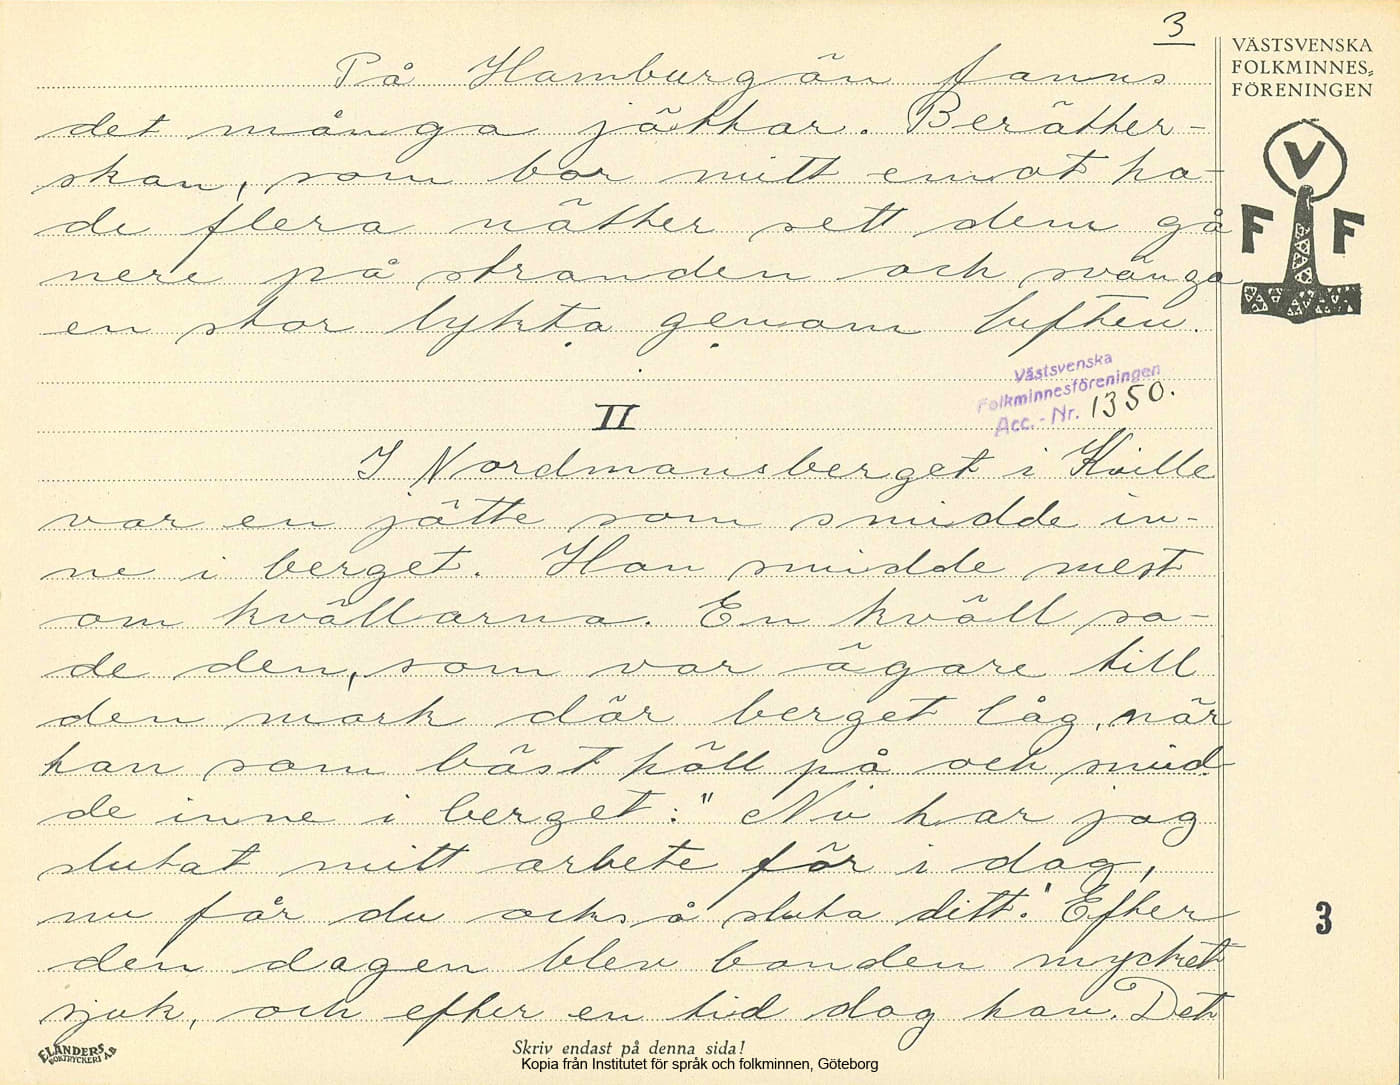 3
VÄSTSVENSKA
FOLKMINNES-
FÖRENINGEN
V
F F
På Hamburgön fanns
det många jättar. Berätter-
skan, som bor mitt emot ha-
de flera nätter sett dem gå
nere på stranden och svänga
en stor lykta genom luften.
Västsvenska
Folkminnesföreningen
Acc. - Nr. 1350.
II
I Nordmansberget i Kville
var en jätte som smidde in-
ne i berget. Han smidde mest
om kvällarna. En kväll sa-
de den, som var ägare till
den mark där berget låg, när
han som bäst höll på och smid-
de inne i berget: "Nu har jag
slutat mitt arbete för i dag,
nu får du också sluta ditt." Efter
den dagen blev bonden mycket
sjuk, och efter en tid dog han. Det
3
ELANDERS
BOKTRYCKERI A.B
Skriv endast på denna sida!
Kopia från Institutet för språk och folkminnen, Göteborg